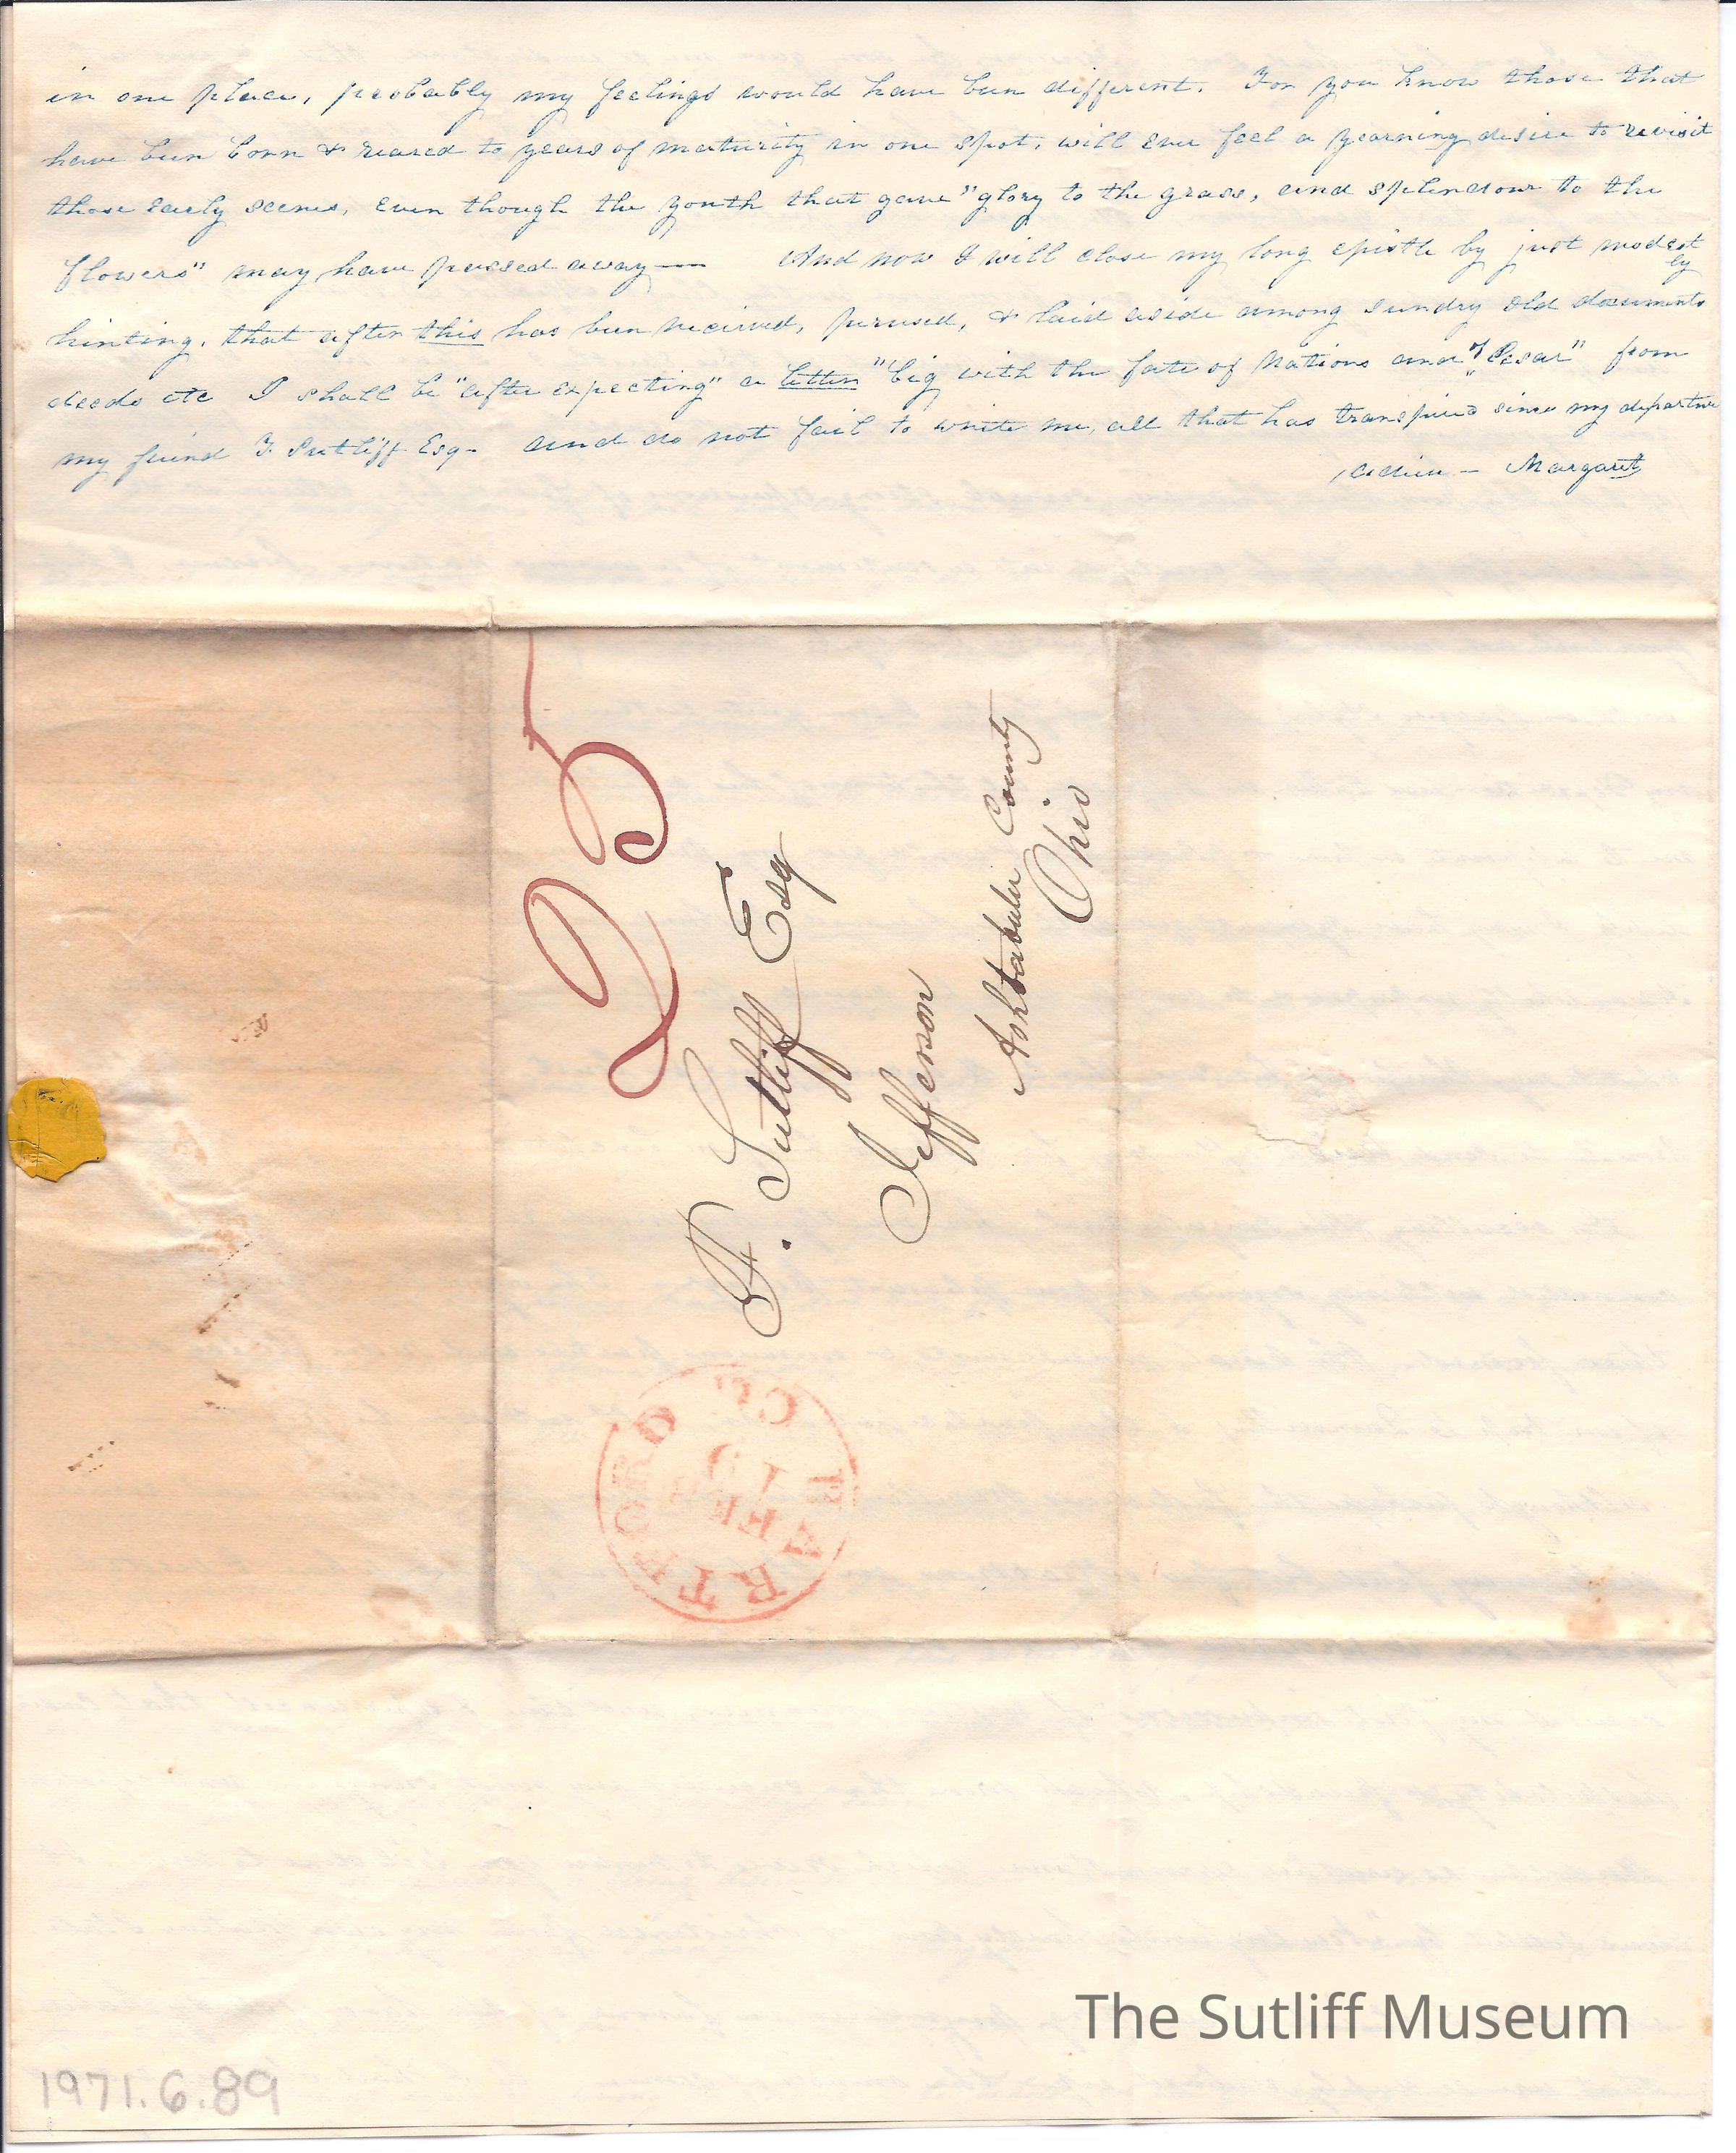 in one place, probably my feelings would have been different. For you know those that
have been born & reared to years of maturity in one spot, will ever feel a yearning desire to revisit
those early scenes, even though the youth that gave "glory to the grass, and splendour to the
flowers" may have passed away — And now I will close my long epistle by just modestly
hinting, that after this has been received, perused, & laid aside among sundry old documents
deeds etc I shall be "after expecting" a letter "big with the fate of Nations and of Cesar" from
my friend F. Sutliff Esq- and do not fail to write me, all that has transpired since my departure
adieu — Margaret
25
F. Sutliff Esq
Jefferson
Ashtabula County
Ohio
HARTFORD
FEB
19
The Sutliff Museum
1971.6.89